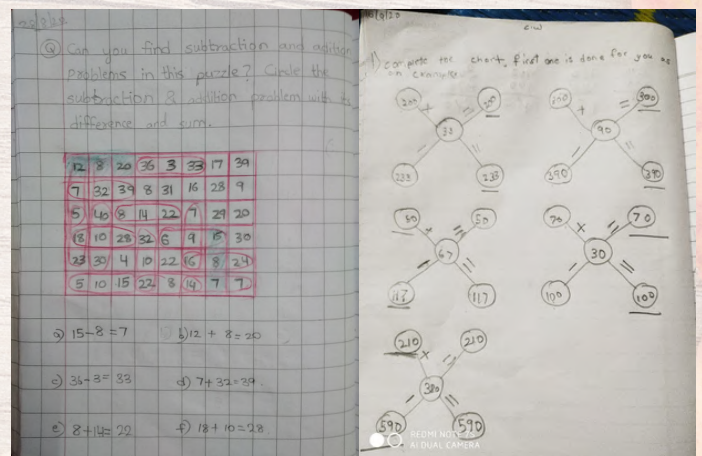 28/8/20
Q Can you find subtraction and addition
problems in this puzzle? Circle the
subtraction & addition problem with its
difference and sum.
12 8 20 36 3 33 17 39
7 32 39 8 31 16 28 9
5 40 8 14 22 7 29 20
18 10 28 32 6 9 15 30
23 30 4 10 22 16 8 24
5 10 15 22 8 14 7 7
a) 15-8=7 b) 12 + 8=20
c) 36-3= 33 d) 7+32=39.
e) 8+14= 22 f) 18+10=28
/9/20
c/w
1) complete the chart, first one is done for you as
an example.
200 + = 200
33
- =
233 233
+ = 300
90
- =
390 390
50 + = 50
67
- =
117 117
70 + = 70
30
- =
100 100
210 + = 210
380
- =
590 590
REDMI NOTE 7S
AI DUAL CAMERA